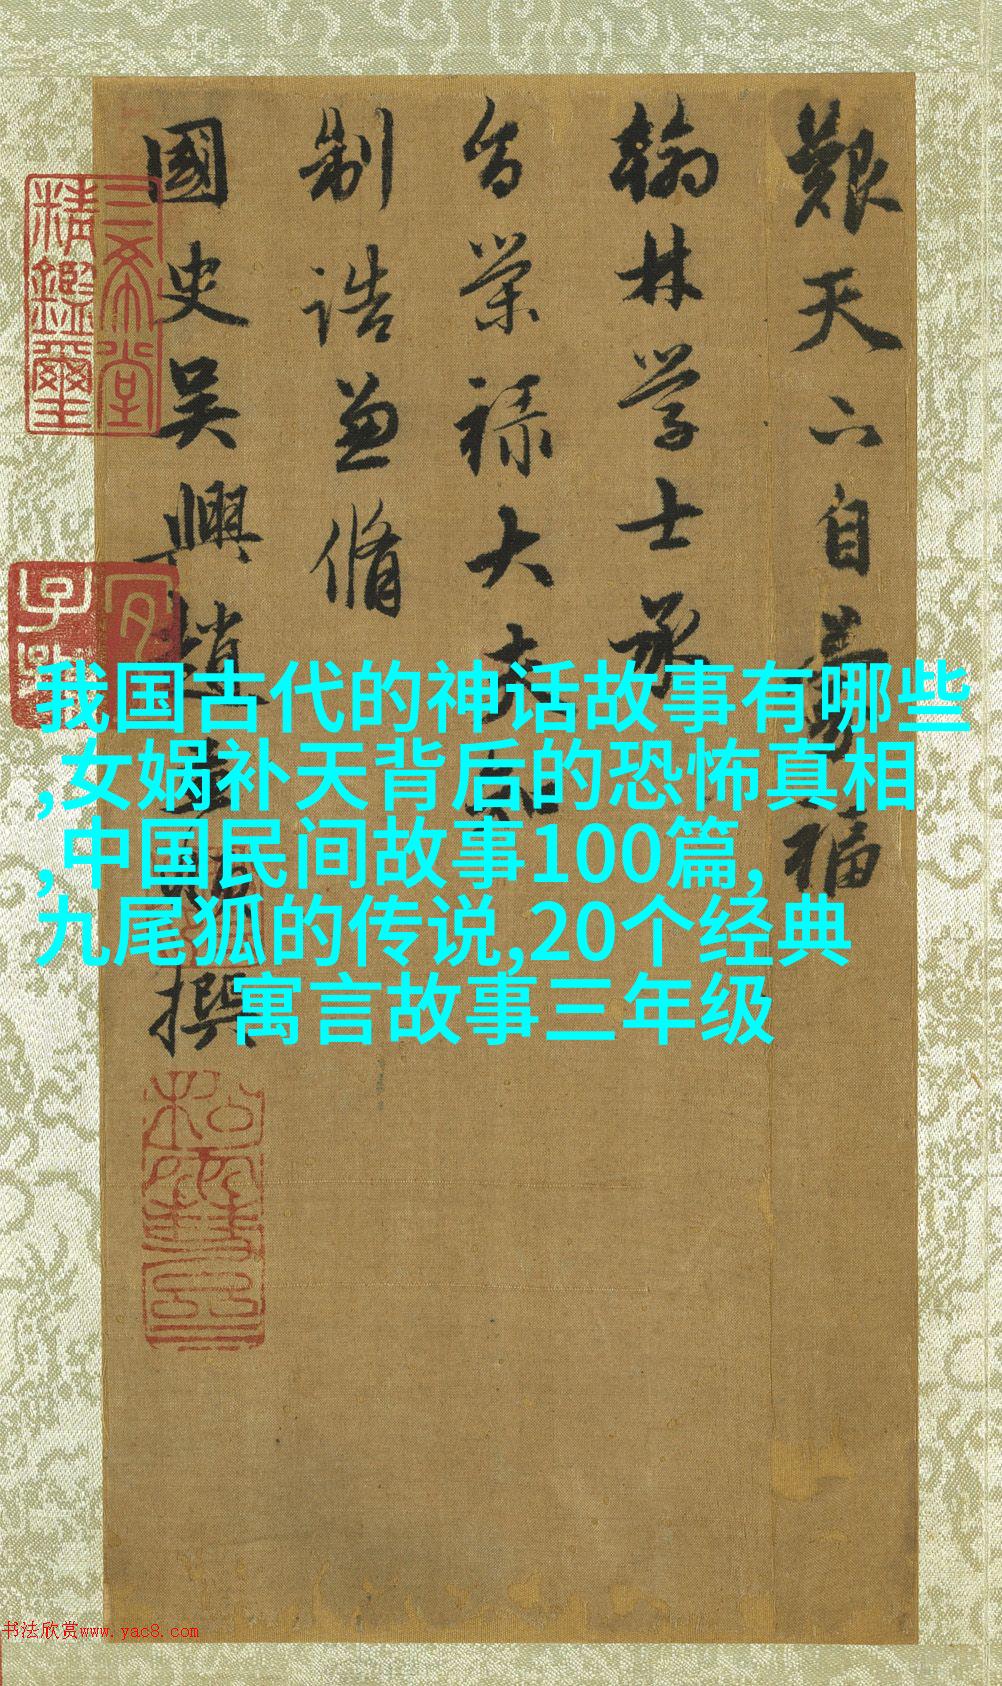 艱天自福
翰林学士承
旨荣禄大夫知
制誥兼脩
國史吳興趙孟頫撰
三希堂
精鑑璽
宜
子孫
我国古代的神话故事有哪些
,女娲补天背后的恐怖真相
,中国民间故事100篇,
九尾狐的传说,20个经典
寓言故事三年级
书法欣赏www.yac8.com